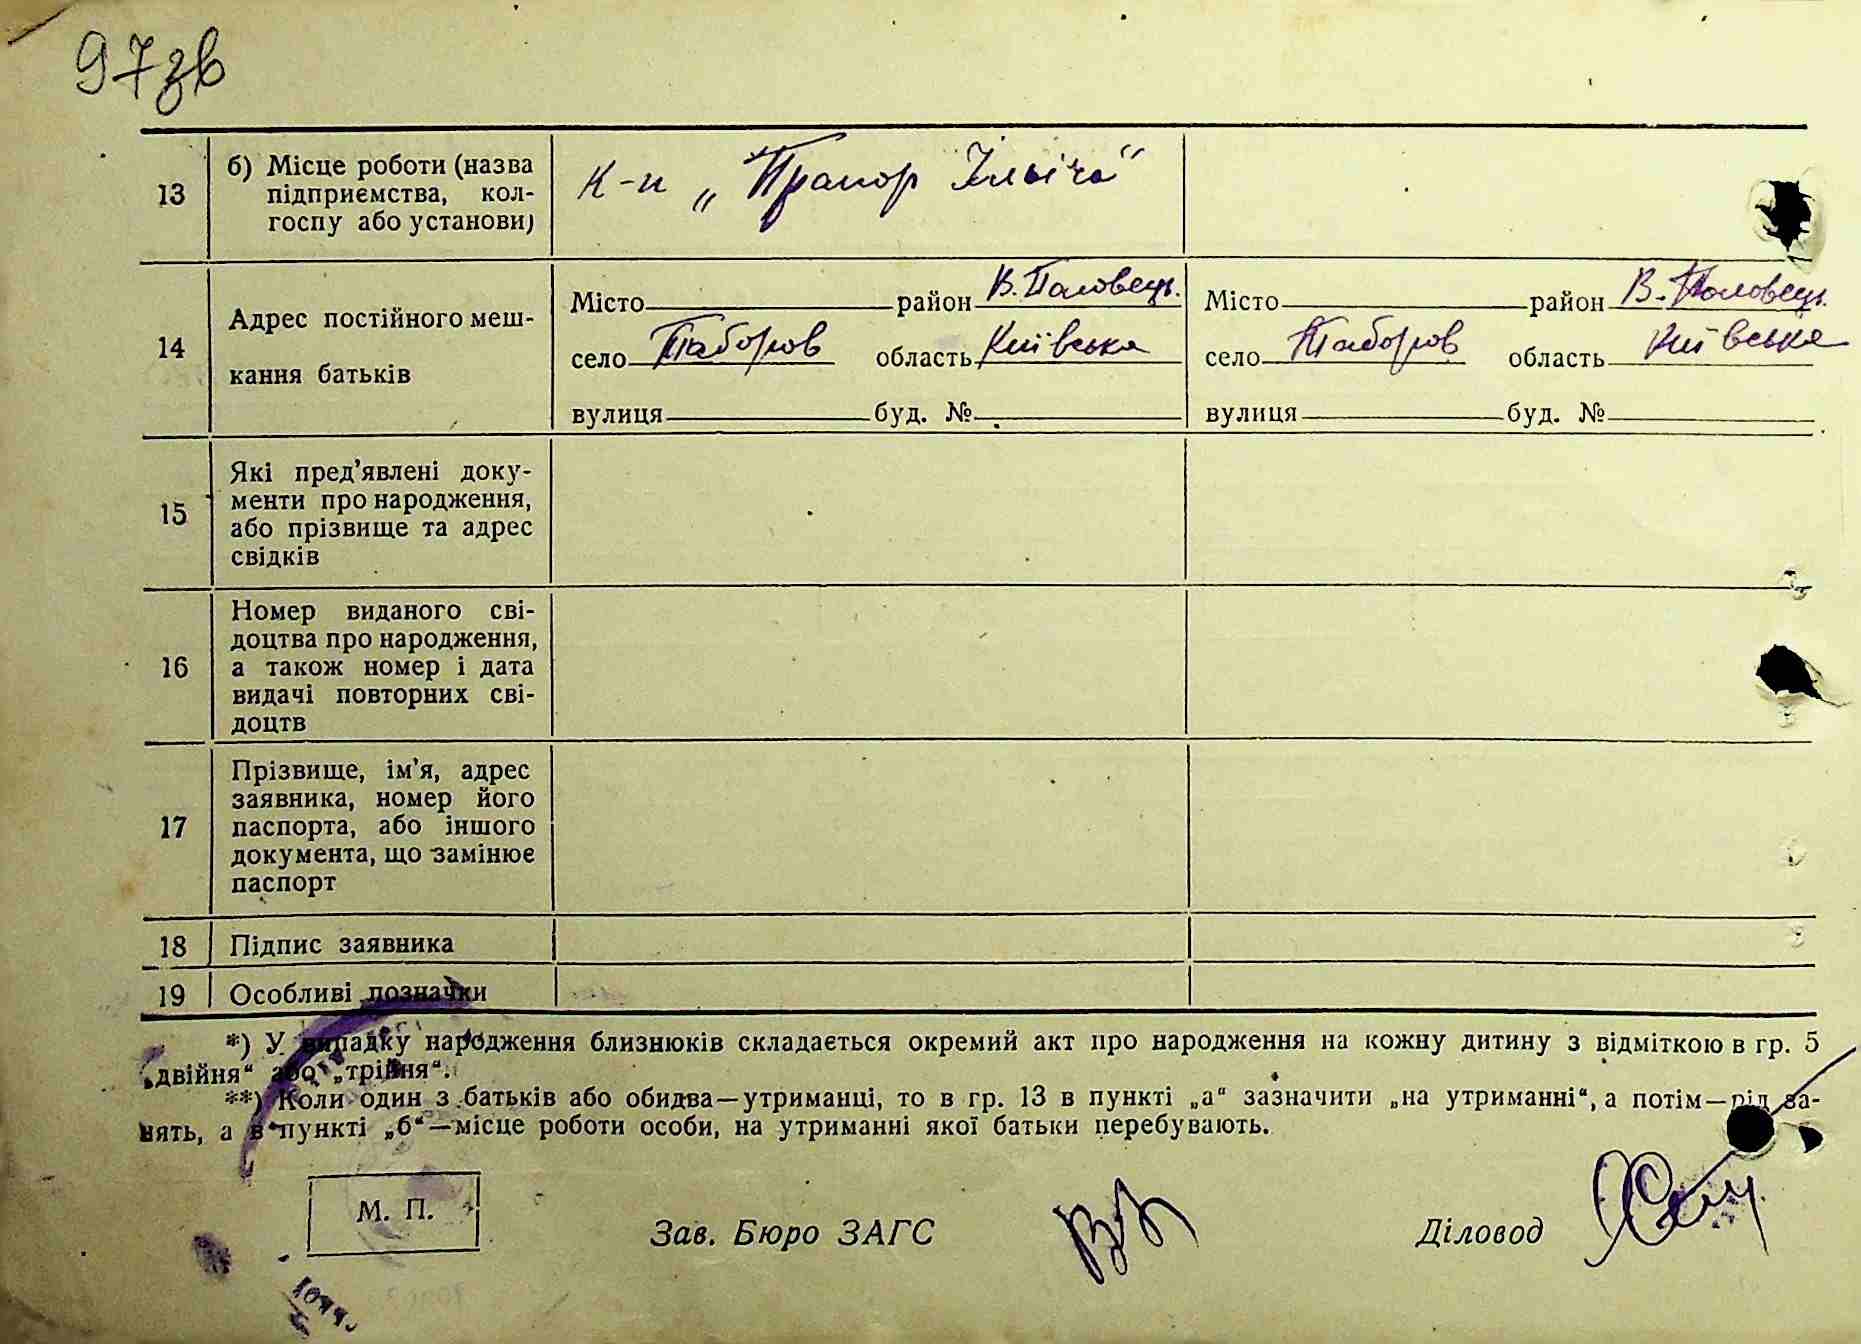 97зв
13 б) Місце роботи (назва
підприємства, кол-
госпу або установи)
К-п „Прапор Ілліча“
14 Адрес постійного меш-
кання батьків
Місто район В. Половець. Місто район В. Половець.
село Таборов область Київська село Таборов область Київська
вулиця буд. № вулиця буд. №
15 Які пред’явлені доку-
менти про народження,
або прізвище та адрес
свідків
16 Номер виданого сві-
доцтва про народження,
а також номер і дата
видачі повторних сві-
доцтв
17 Прізвище, ім’я, адрес
заявника, номер його
паспорта, або іншого
документа, що замінює
паспорт
18 Підпис заявника
19 Особливі позначки
*) У випадку народження близнюків складається окремий акт про народження на кожну дитину з відміткою в гр. 5
„двійня“ або „трійня“.
**) Коли один з батьків або обидва—утриманці, то в гр. 13 в пункті „а“ зазначити „на утриманні“, а потім—рід за-
нять, а в пункті „б“—місце роботи особи, на утриманні якої батьки перебувають.
М. П.
Зав. Бюро ЗАГС Діловод